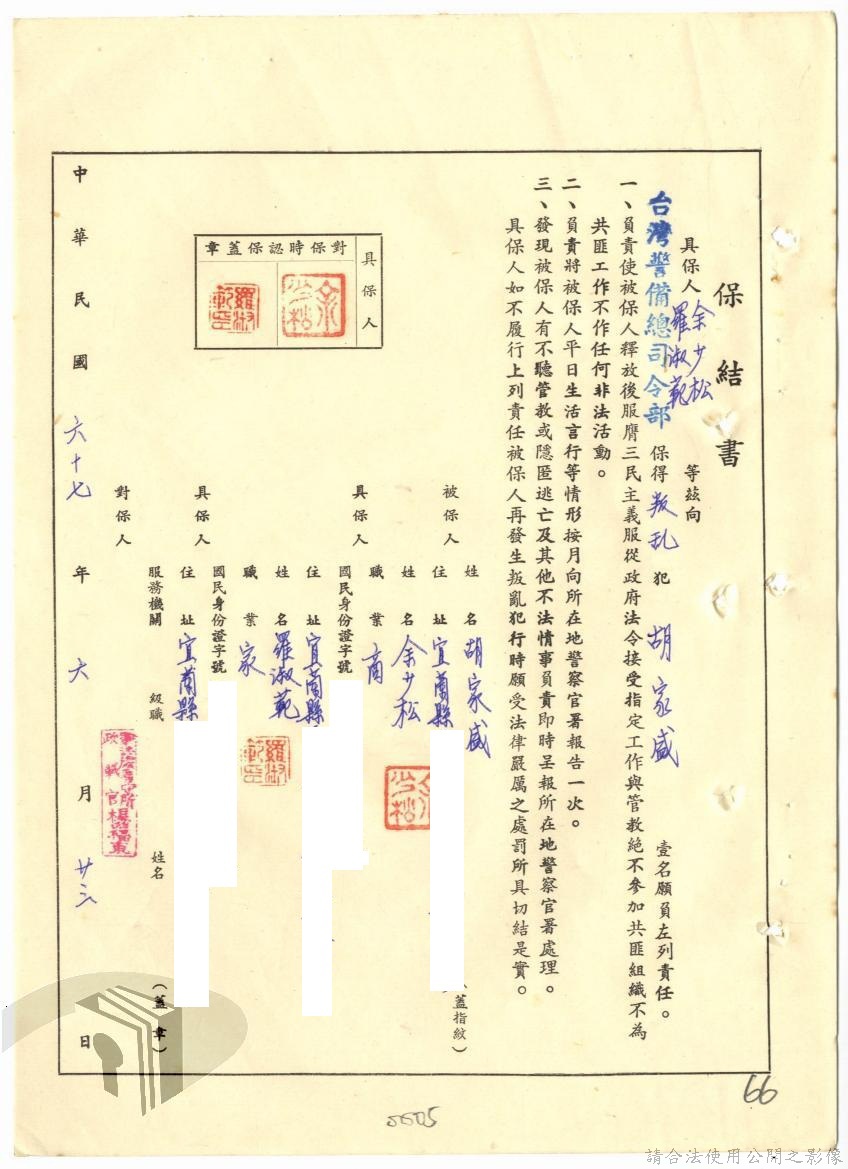 保結書
具保人余少松
羅淑範
等茲向
台灣警備總司令部保得叛乱犯胡家盛壹名願負左列責任。
一、負責使被保人釋放後服膺三民主義服從政府法令接受指定工作與管教絕不參加共匪組織不為
共匪工作不作任何非法活動。
二、負責將被保人平日生活言行等情形按月向所在地警察官署報告一次。
三、發現被保人有不聽管教或隱匿逃亡及其他不法情事負責即時呈報所在地警察官署處理。
具保人如不履行上列責任被保人再發生叛亂犯行時願受法律嚴厲之處罰所具切結是實。
具保人
對保時認保蓋章
余少松
羅淑範印
被保人
姓名胡家盛
住址宜蘭縣
(蓋指紋)
具保人
姓名余少松
職業商
國民身份證字號
住址宜蘭縣
余少松
具保人
姓名羅淑範
職業家
國民身份證字號
住址宜蘭縣
羅淑範印
對保人
服務機關
級職
姓名
(蓋章)
政戰官楊福東
中華民國六十七年六月廿三日
66
5505
請合法使用公開之影像